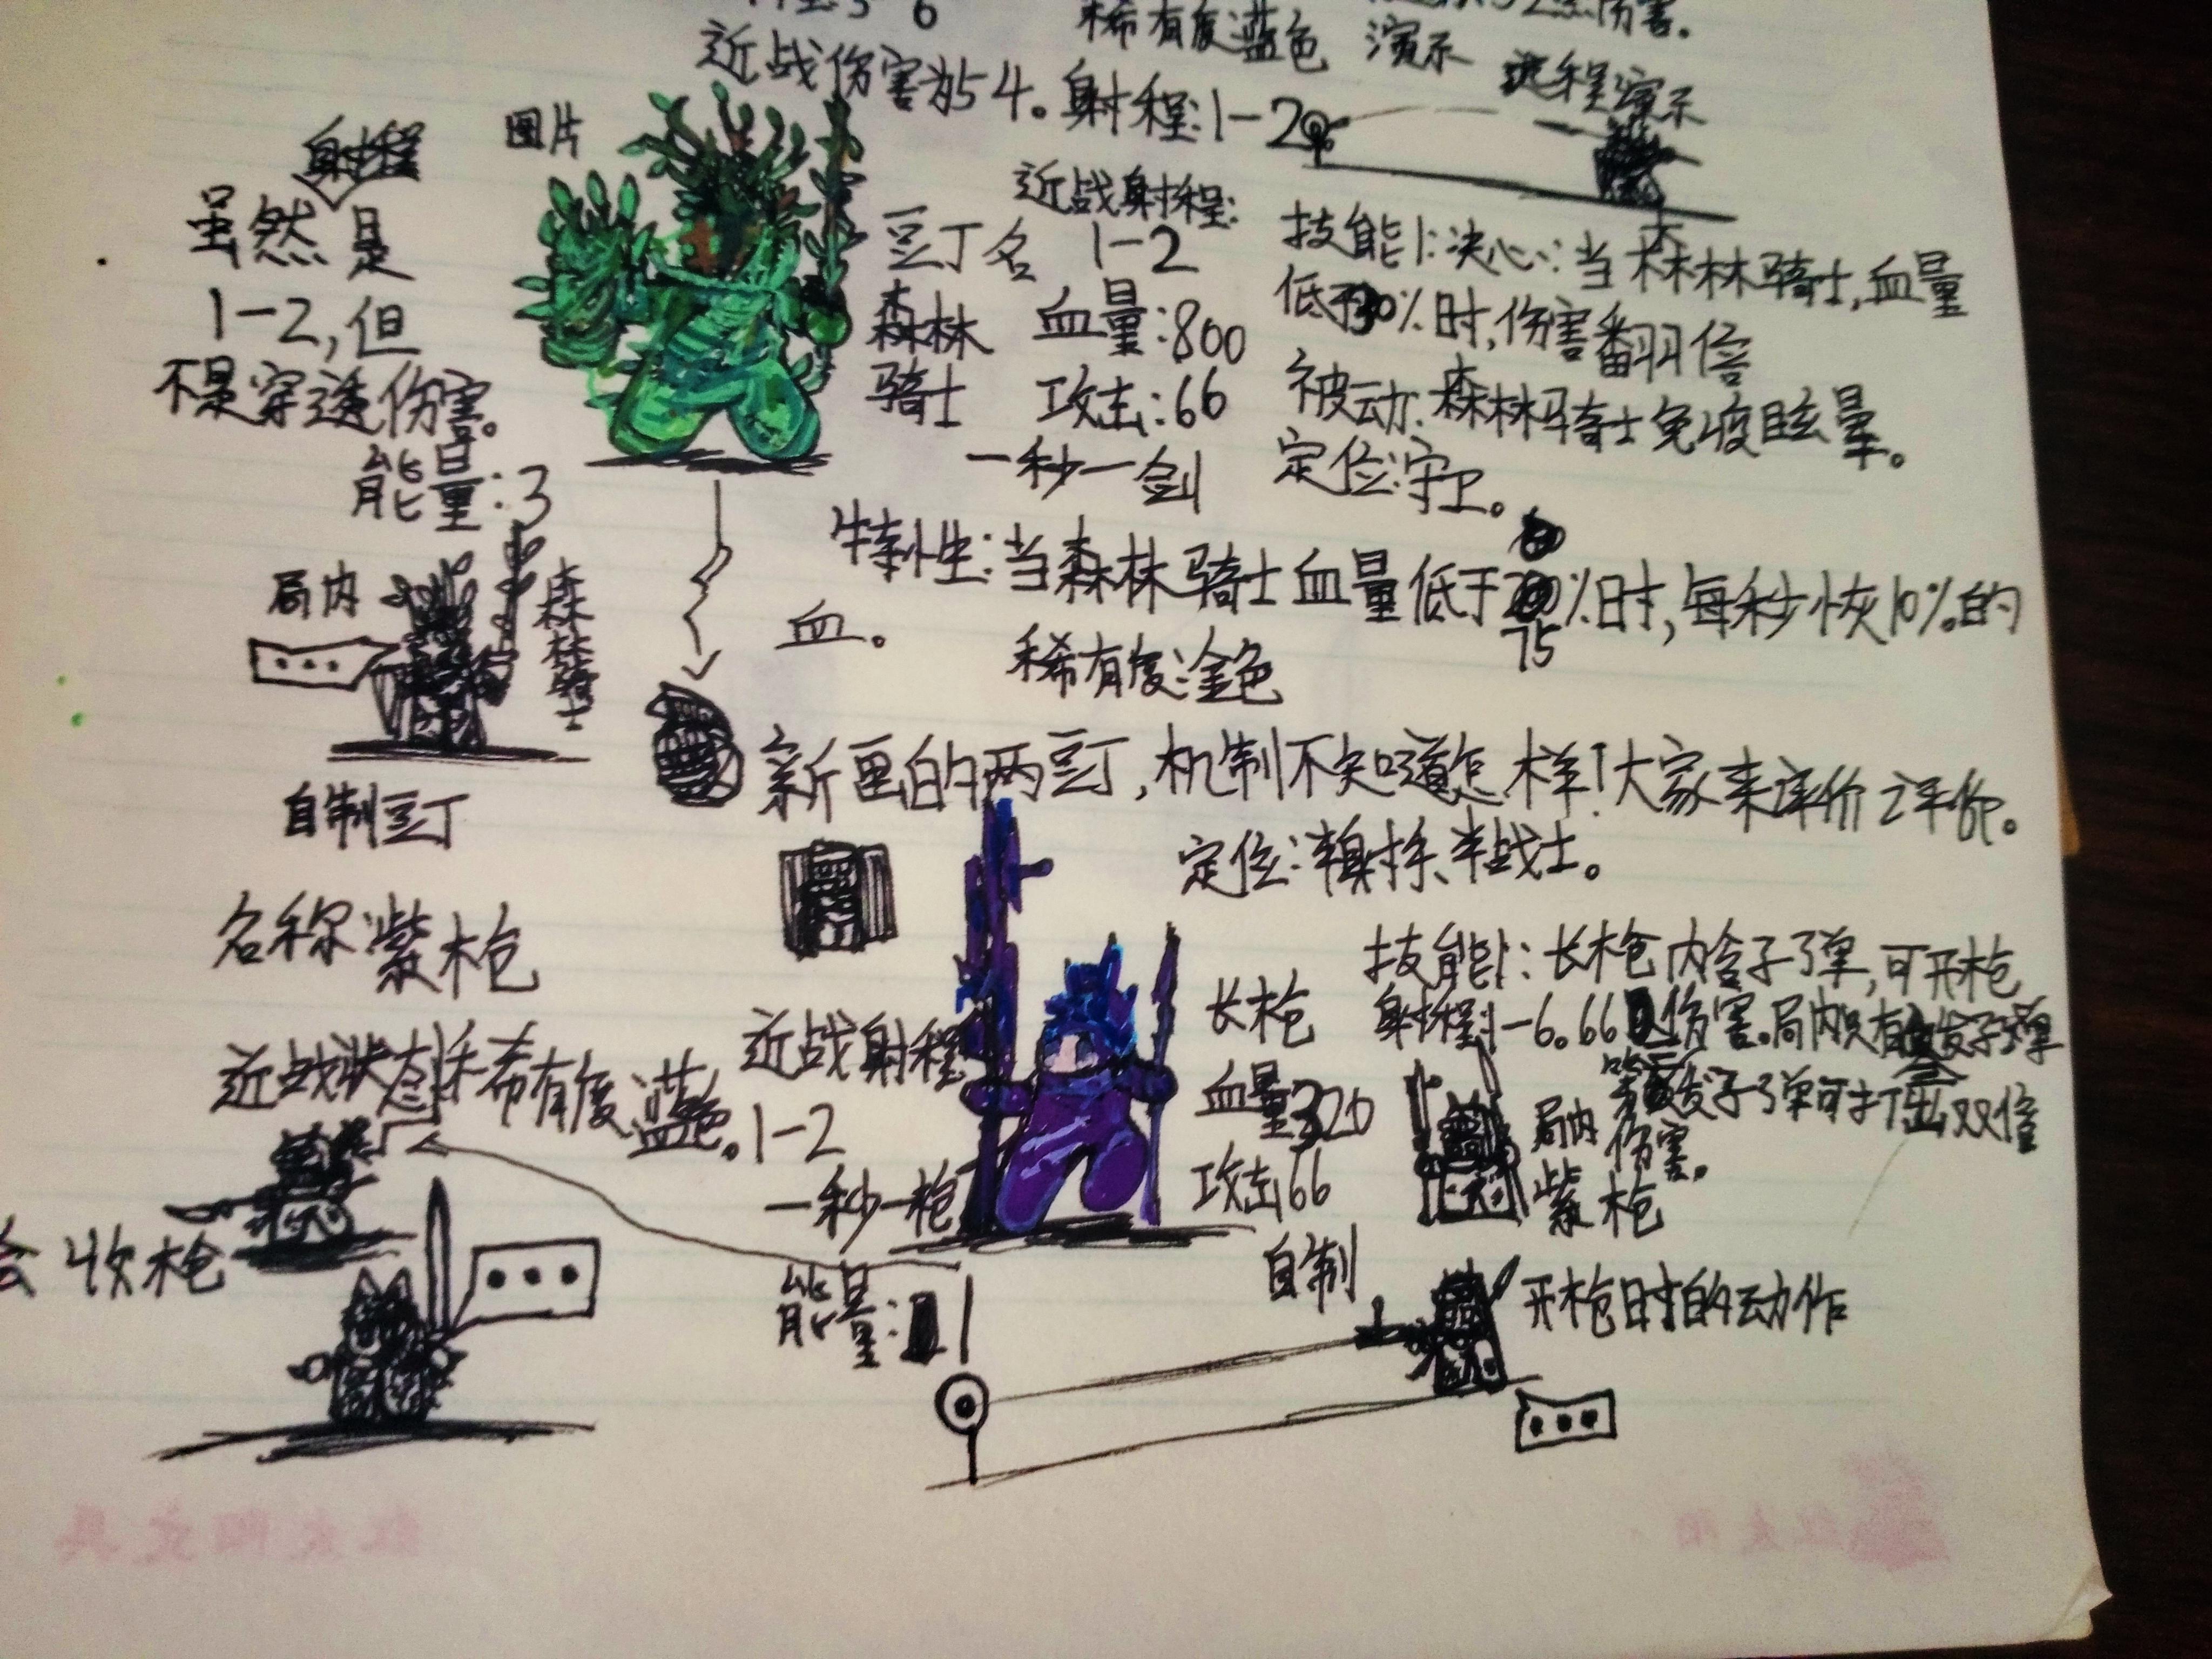 近战伤害为54。
射程:1-2
稀有度蓝色 演示
伤害。
远程演示
射程
虽然是
1-2,但
不是穿透伤害。
能量:3
图片
豆丁名
森林
骑士
近战射程:
1-2
血量:800
攻击:66
一秒一剑
技能1:决心:当森林骑士,血量
低于30%时,伤害翻倍
被动:森林骑士免疫眩晕。
定位:守卫。
特性:当森林骑士血量低于75%时,每秒恢10%的
血。
稀有度:金色
局内
森林骑士
自制豆丁
新画的两豆丁,机制不知道怎样!大家来评价评价。
定位:半射手、半战士。
名称:紫枪
近战状态
稀有度:蓝色。
近战射程
1-2
一秒一枪
能量:1
长枪
血量320
攻击66
自制
技能1:长枪内含子弹,可开枪
射程1-6。66伤害。局内只有发子弹
发子弹可打出双倍
伤害。
局内
紫枪
开枪时的动作
会收枪
红太阳文具
红太阳